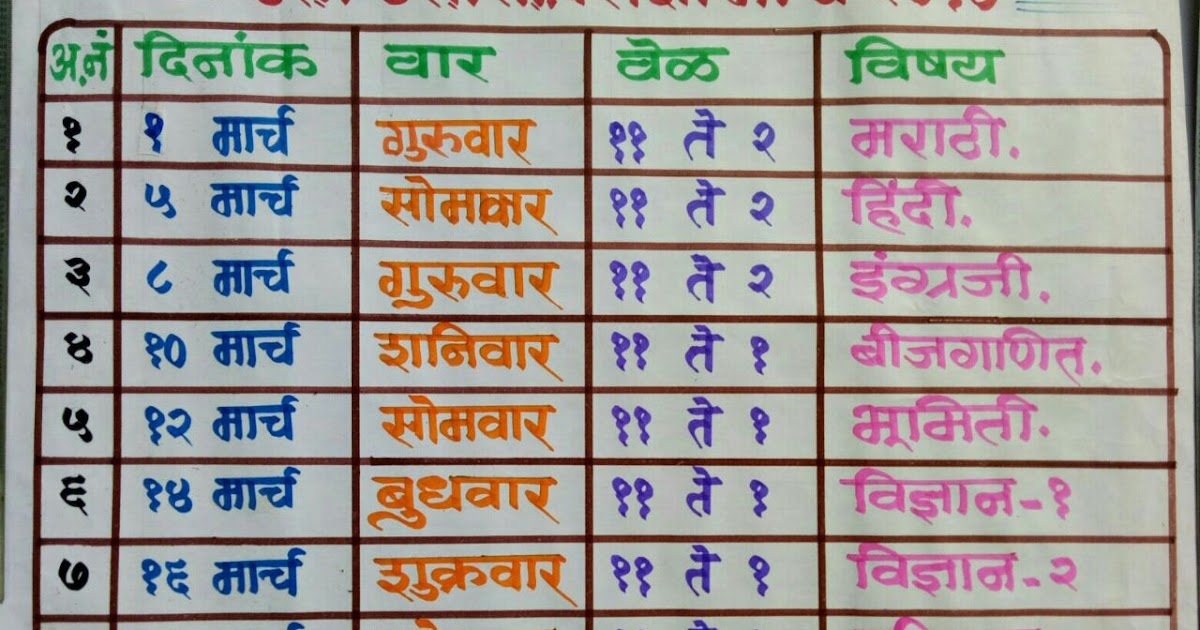 अ.नं दिनांक वार वेळ विषय
१ १ मार्च गुरुवार ११ ते २ मराठी.
२ ५ मार्च सोमवार ११ ते २ हिंदी.
३ ८ मार्च गुरुवार ११ ते २ इंग्रजी.
४ १० मार्च शनिवार ११ ते १ बीजगणित.
५ १२ मार्च सोमवार ११ ते १ भूमिती.
६ १४ मार्च बुधवार ११ ते १ विज्ञान-१
७ १६ मार्च शुक्रवार ११ ते १ विज्ञान-२